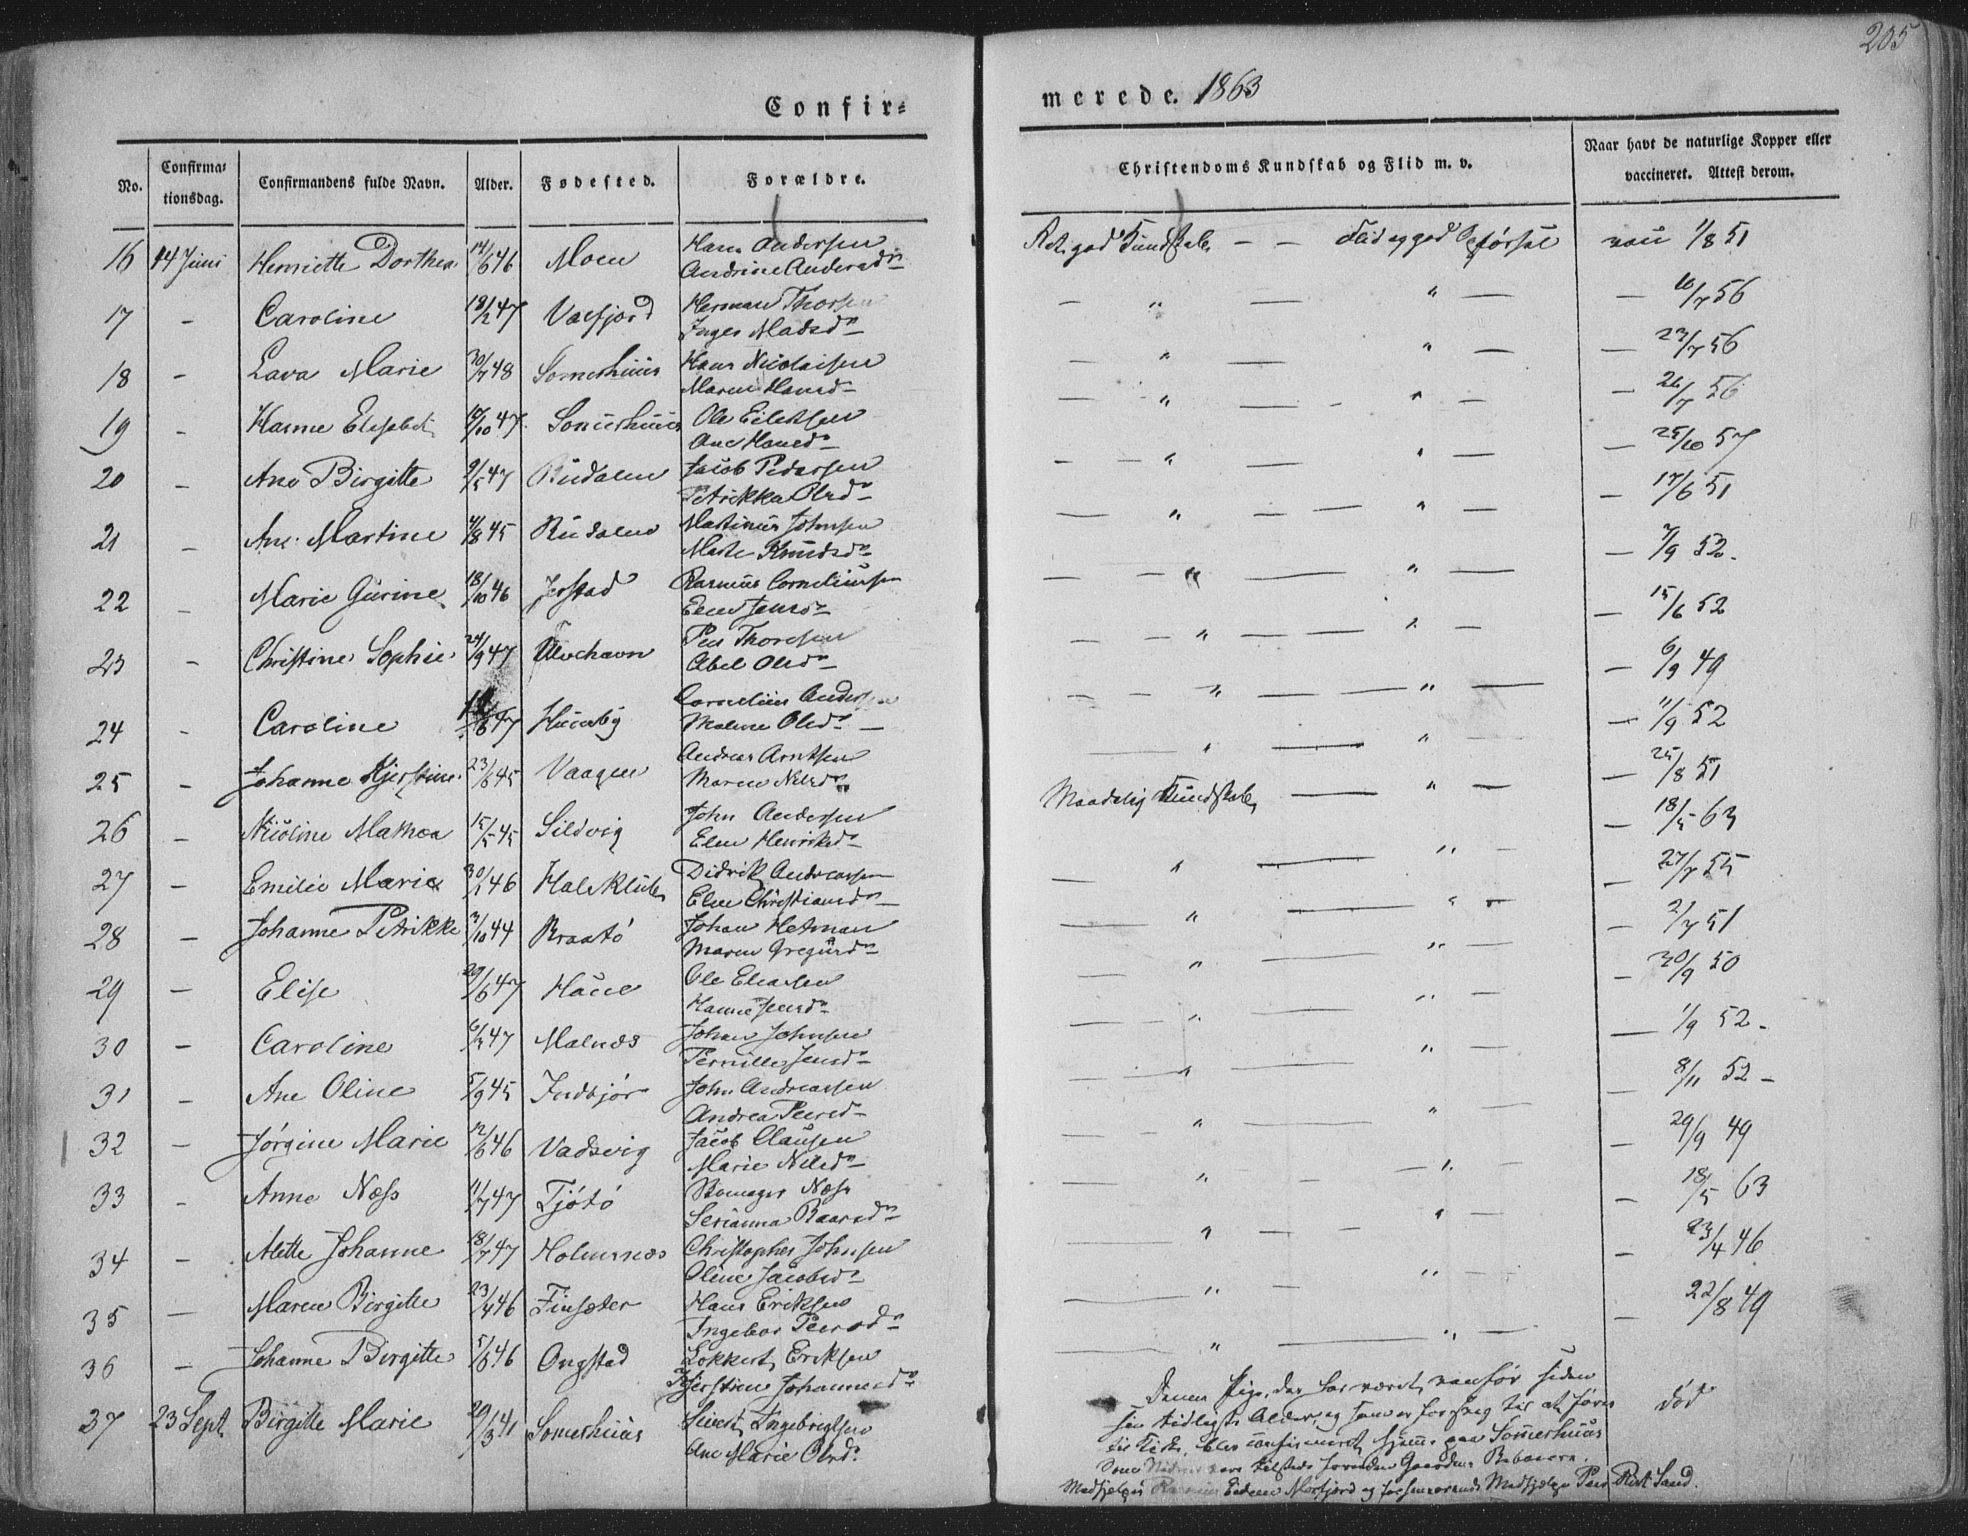 205
Confir=
merede. 1863
No.
Confirma=
tionsdag.
Confirmandens fulde Navn.
Alder.
Fødested.
Forældre.
Christendoms Kundskab og Flid m. v.
Naar havt de naturlige Kopper eller
vaccineret. Attest derom.
16 14 Juni Henriette Dorthea 14/6 46 Moen Hans Andersen
Andrine Andersdr Ret god Kundskab — — Flid og god Opførsel vacc 1/8 51
17 - Caroline 18/2 47 Valfjord Herman Thorsen
Inger Madsdr — " — " — — 16/7 56
18 - Lava Marie 30/7 48 Somerhuus Hans Nicolaisen
Maren Hansd — " — " — — 23/7 56
19 - Hanne Elisabet /10 47 Somerhuus Ole Eilertsen
Ane Hansdr — " — - " — — 26/7 56
20 - Ane Birgitte 9/5 47 Rudalen Jacob Pedersen
Petrikka Olsdr — — " — — " — — 25/10 57
21 - Ane Martine 4/8 45 Rudalen Martinus Johnsen
Marte Knudsdr — " — — " — — 17/6 51
22 - Marie Gurine 18/10 46 Jerstad Rasmus Corneliusen
Elen Jensdr — — " — — " — — 7/9 52.
23 - Christine Sophie 24/9 47 Ulvehavn Peer Thoresen
Abel Olsdr — — " — — " — — 15/6 52
24 - Caroline /6 47 Huseby Cornelius Andersen
Malene Olsdr — — — " — — — " — — 6/9 49
25 - Johanne Kjerstine 23/6 45 Vaagen Andreas Arntsen
Maren Nilsdr — " — " — — 11/9 52
26 - Nicoline Mathea 15/5 45 Sildvig John Andersen
Elen Henriksdr Maadelig Kundskab — " — — 25/8 51
27 - Emilie Marie 30/1 46 Halsklub Didrik Andreassen
Elen Christiansdr — " — " — — 18/5 63
28 - Johanne Petrikke 3/10 44 Braatø Johan Hetman
Maren Gregersdr — " — " — — 27/7 55
29 - Elise 29/6 47 Haue Ole Eliasen
Hanne Jensdr — " — " — — 2/7 51
30 - Caroline 6/7 47 Malnæs Johan Johnsen
Pernille Jensdr — " — " — — 30/9 50
31 - Ane Oline 5/9 45 Indbjør John Andreassen
Andrea Peersd — " — " — — 1/9 52.
32 - Jørgine Marie 12/6 46 Vadsvig Jacob Clausen
Marie Nilsd — " — " — — 8/11 52 -
33 - Anne Næss 11/7 47 Tjøtø Næss
Serianna Baarsdr — " — — " — 29/9 49
34 - Alette Johanne 18/7 47 Holmsnæs Christopher Johnsen
Oline Jacobsdr — " — — " — — 18/5 63
35 - Maren Birgitte 23/4 46 Finsæter Hans Eriksen
Ingebor Peersdr — " — " — — 23/4 46
36 - Johanne Birgitte 5/6 46 Ongstad Lokkert Eriksen
Kjerstine Johannesdr — " — " — — 22/8 49
37 23 Sept Birgitte Marie 29/3 41 Somerhuus Sivert Ingebrigtsen
Ane Marie Olsdr
Denne Pige, der har været vanfør siden død
sin tidligste Alder, og som er for svag til at føres
til Kirke, blev confirmeret hjeme paa Somerhuus
Som vare tilstede foruden Gaardens Beboere:
Medhjelper Rasmus Morfjord og forhenværende Medhjelper Peer Sand.